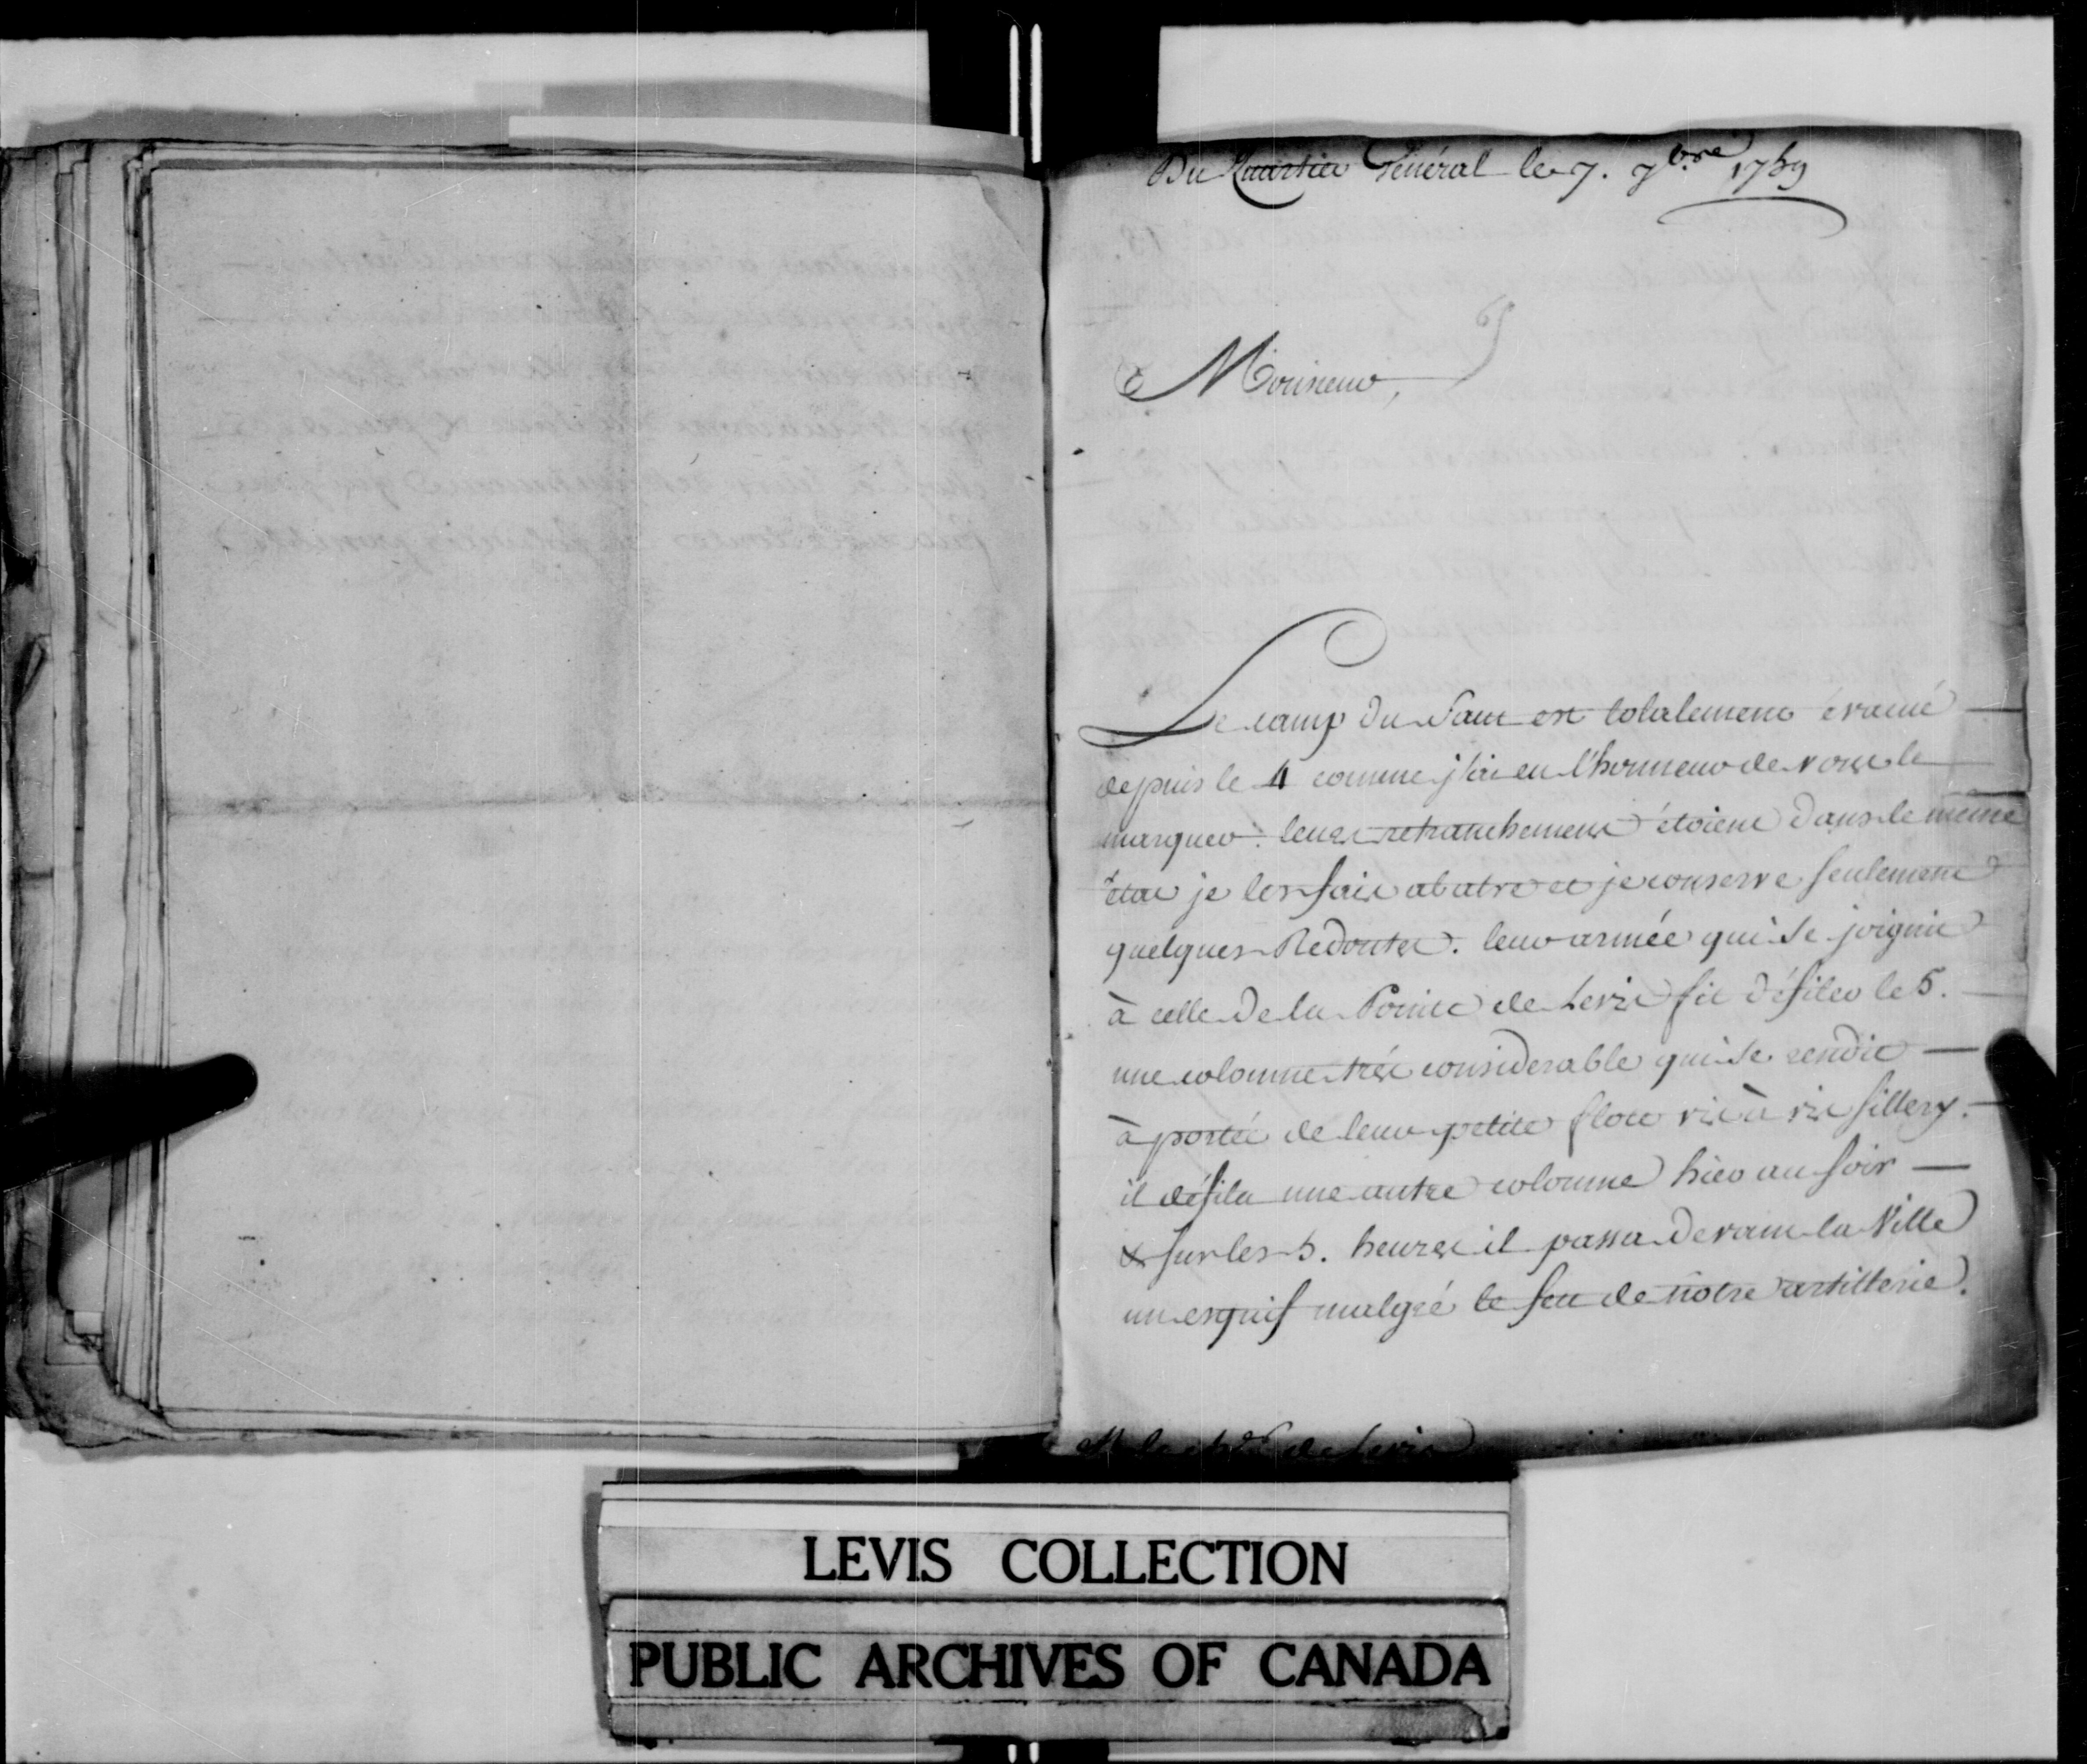 Du Quartier Général le 7. 7bre 1759
Monsieur,
Le camp du Saut est totalement évacué
depuis le 4 comme j'ai eu l'honneur de vous le
marquer. leurs retranchemens étoient dans le même
état je les fais abatre et je conserve seulement
quelques Redoutes. leur armée qui se joignit
à celle de la Pointe de Levis fit défiler le 5.
une colonne très considerable qui se rendit
à portée de leur petite flote vis à vis Sillery.
il défila une autre colonne hier au soir
& sur les 5. heures il passa devant la Ville
un esquif malgré le feu de nôtre artillerie.
M. le chr de Levis
LEVIS COLLECTION
PUBLIC ARCHIVES OF CANADA